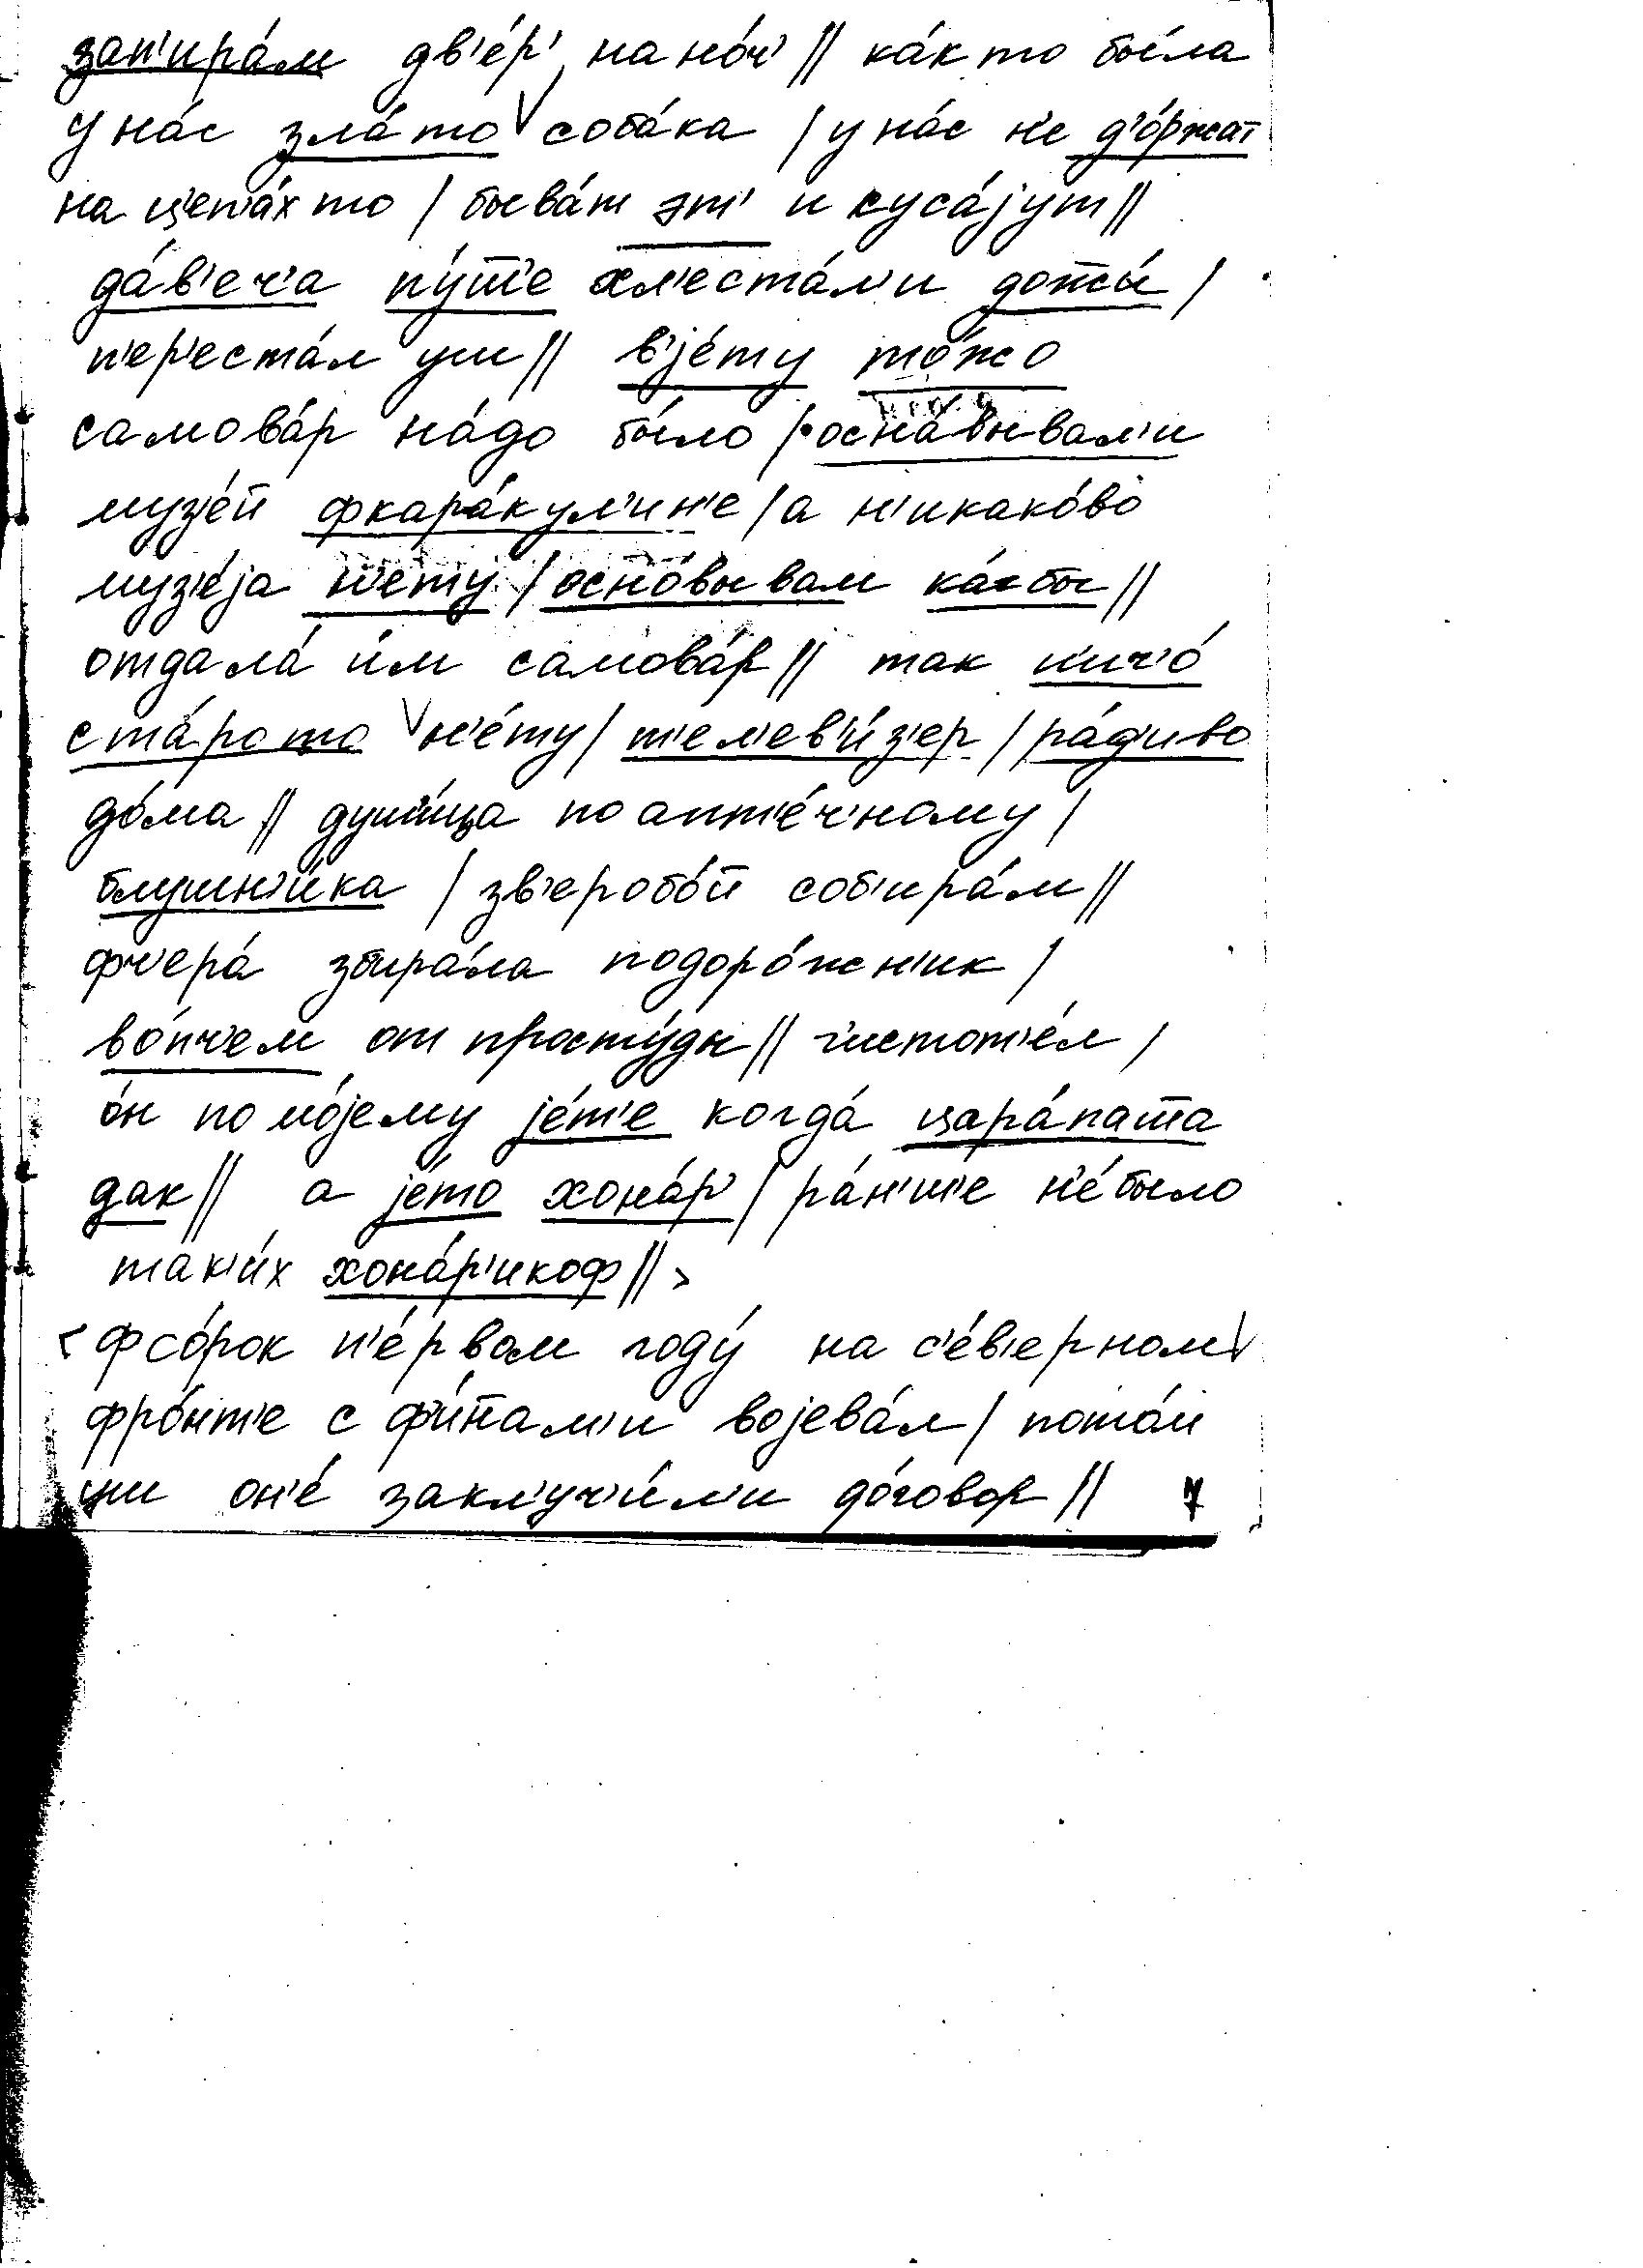 зап'ира́м дв'е́р' на но́ч' // ка́к то бы́ла
у на́с зла́ то соба́ка / у на́с н'е д'о́ржат
на цепа́х то / быва́т эт' и куса́јут //
да́в'еч'а пу́т̅'е хл'еста́л'и дожжы́ /
п'ер'еста́л уш // в'је́ту то́жо
самова́р на́до бы́ло / осна́вывал'и
муз'е́й фкара́кул'ин'е / а н'икако́во
муз'е́ја н'е́ту / осно́вывам ка́к бы //
отдала́ и́м самова́р // так н'ич'о́
ста́ро то н'е́ту / т'ел'ев'и́з'ер / ра́д'иво
до́ма // души́ца по апт'е́ч'ному /
блушн'и́ка / зв'еробо́й соб'ира́м //
фч'ера́ зб'ира́ла подоро́жн'ик /
во́пч'ем от просту́ды // ч'истот'е́л /
о́н по мо́јему је́т'е когда́ цара́пат̅а
дак // а је́то хона́р' / ра́н'ш'е н'е́ было
так'и́х хона́р'икоф // >
< фсо́рок п'е́рвом году́ на с'е́в'ерном
фро́нт'е с ф'и́н̅ам'и војева́л / пото́м
уш он'е́ закл'уч'и́л'и до́говор // 7